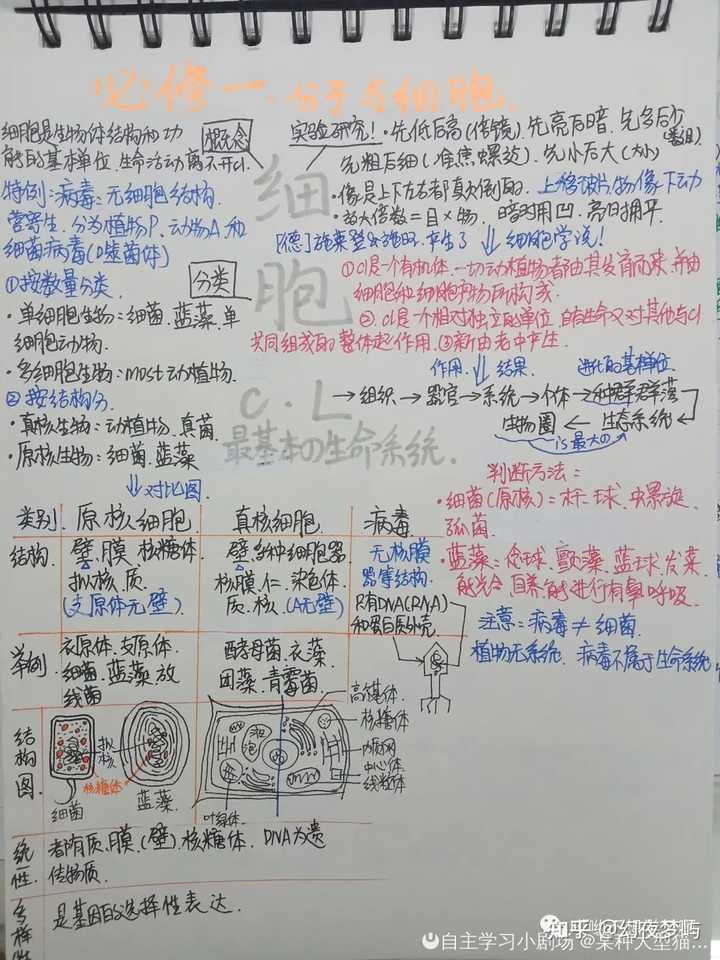 必修一·分子与细胞
细胞是生物体结构和功
能的基本单位,生命活动离不开cl.
概念
特例:病毒:无细胞结构.
营寄生.分为植物P、动物A、和
细菌病毒(噬菌体)
分类
①按数量分类.
·单细胞生物:细菌.蓝藻.单
细胞动物.
·多细胞生物:most动植物.
②按结构分.
·真核生物:动植物.真菌.
·原核生物:细菌.蓝藻
⇓对比图.
实验研究!·先低后高(倍镜).先亮后暗.先多后少
先粗后细(准焦螺旋).先小后大(大小)
·像是上下左右都真实倒的.
·放大倍数=目×物.暗时用凹.亮旧拥平.
[德]施莱登&施旺.产生了⇓细胞学说!
①cl是一个有机体.一切动植物都由其发育而来.并由
细胞和细胞产物所构成.
②.cl是一个相对独立的单位.自有生命又对其他与cl
共同组成的整体起作用.③新由老中产生.
细
胞
C·L
最基本の生命系统.
作用.⇓结果.
进化的基本单位.
→组织→器官→系统→个体→种群→群落
生物圈←生态系统←
is最大の
判断方法:
·细菌(原核)=杆.球.螺旋
弧菌.
·蓝藻:念球.颤藻.蓝球.发菜
能光合自养.能进行有氧呼吸.
注意:病毒≠细菌.
植物无系统.病毒不属于生命系统.
类别 原核细胞 真核细胞 病毒
结构.
壁.膜.核糖体.
拟核.质.
(支原体无壁)
核膜.仁.染色体.
质.核.(A无壁)
无核膜
器等结构.
只有DNA(RNA)
和蛋白质外壳.
举例
衣原体.支原体.
细菌.蓝藻.放
线菌
酵母菌.衣藻.
团藻.青霉菌.
结
构
图.
拟
核
核糖体
细菌
蓝藻.
液
泡
叶绿体.
高尔基体.
核糖体.
内质网
中心体.
线粒体
统
一
性.
都有质.膜.(壁).核糖体.DNA为遗
传物质.
多
样
是基因的选择性表达.
知乎 @幻夜梦屿
自主学习小剧场@某种大型猫...